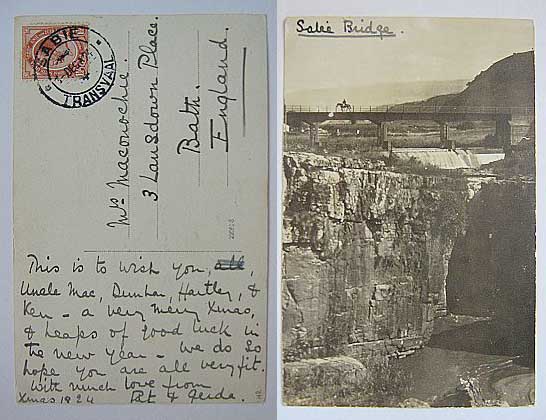 SABIE
TRANSVAAL
Mrs Maconochie
3 Lansdown Place.
Bath.
England.
This is to wish you, all,
Uncle Mac, Dunbar, Hartley, &
Ken – a very merry Xmas,
& heaps of good luck in
the new year – we do so
hope you are all very fit.
With much love from
Xmas 1924 Pat & Gerda.
Sabie Bridge.